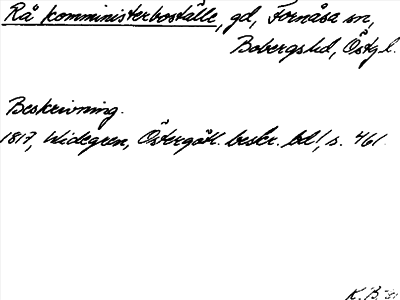 Rå komministerboställe, gd, Fornåsa sn,
Bobergs hd, Östgl.
Beskrivning.
1817, Widegren, Östergötl. beskr. bd 1, s. 461.
K.B.